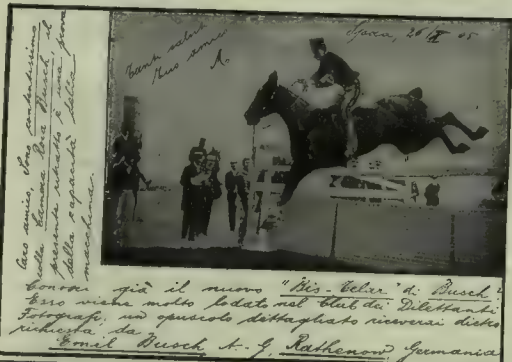 Caro amico, Sono contentissimo
della Camera Roja Busch, il
presente ritratto è una prova
della capacità della
macchina.
Tanti saluti
Tuo amico
A.
Spezia, 26/II 05
Conosci già il nuovo "Bis-Telar" di Busch?
Esso viene molto lodato nel Club dei Dilettanti
Fotografi; un opuscolo dettagliato riceverai dietro
richiesta da
Emil Busch, A.-G., Rathenow, Germania